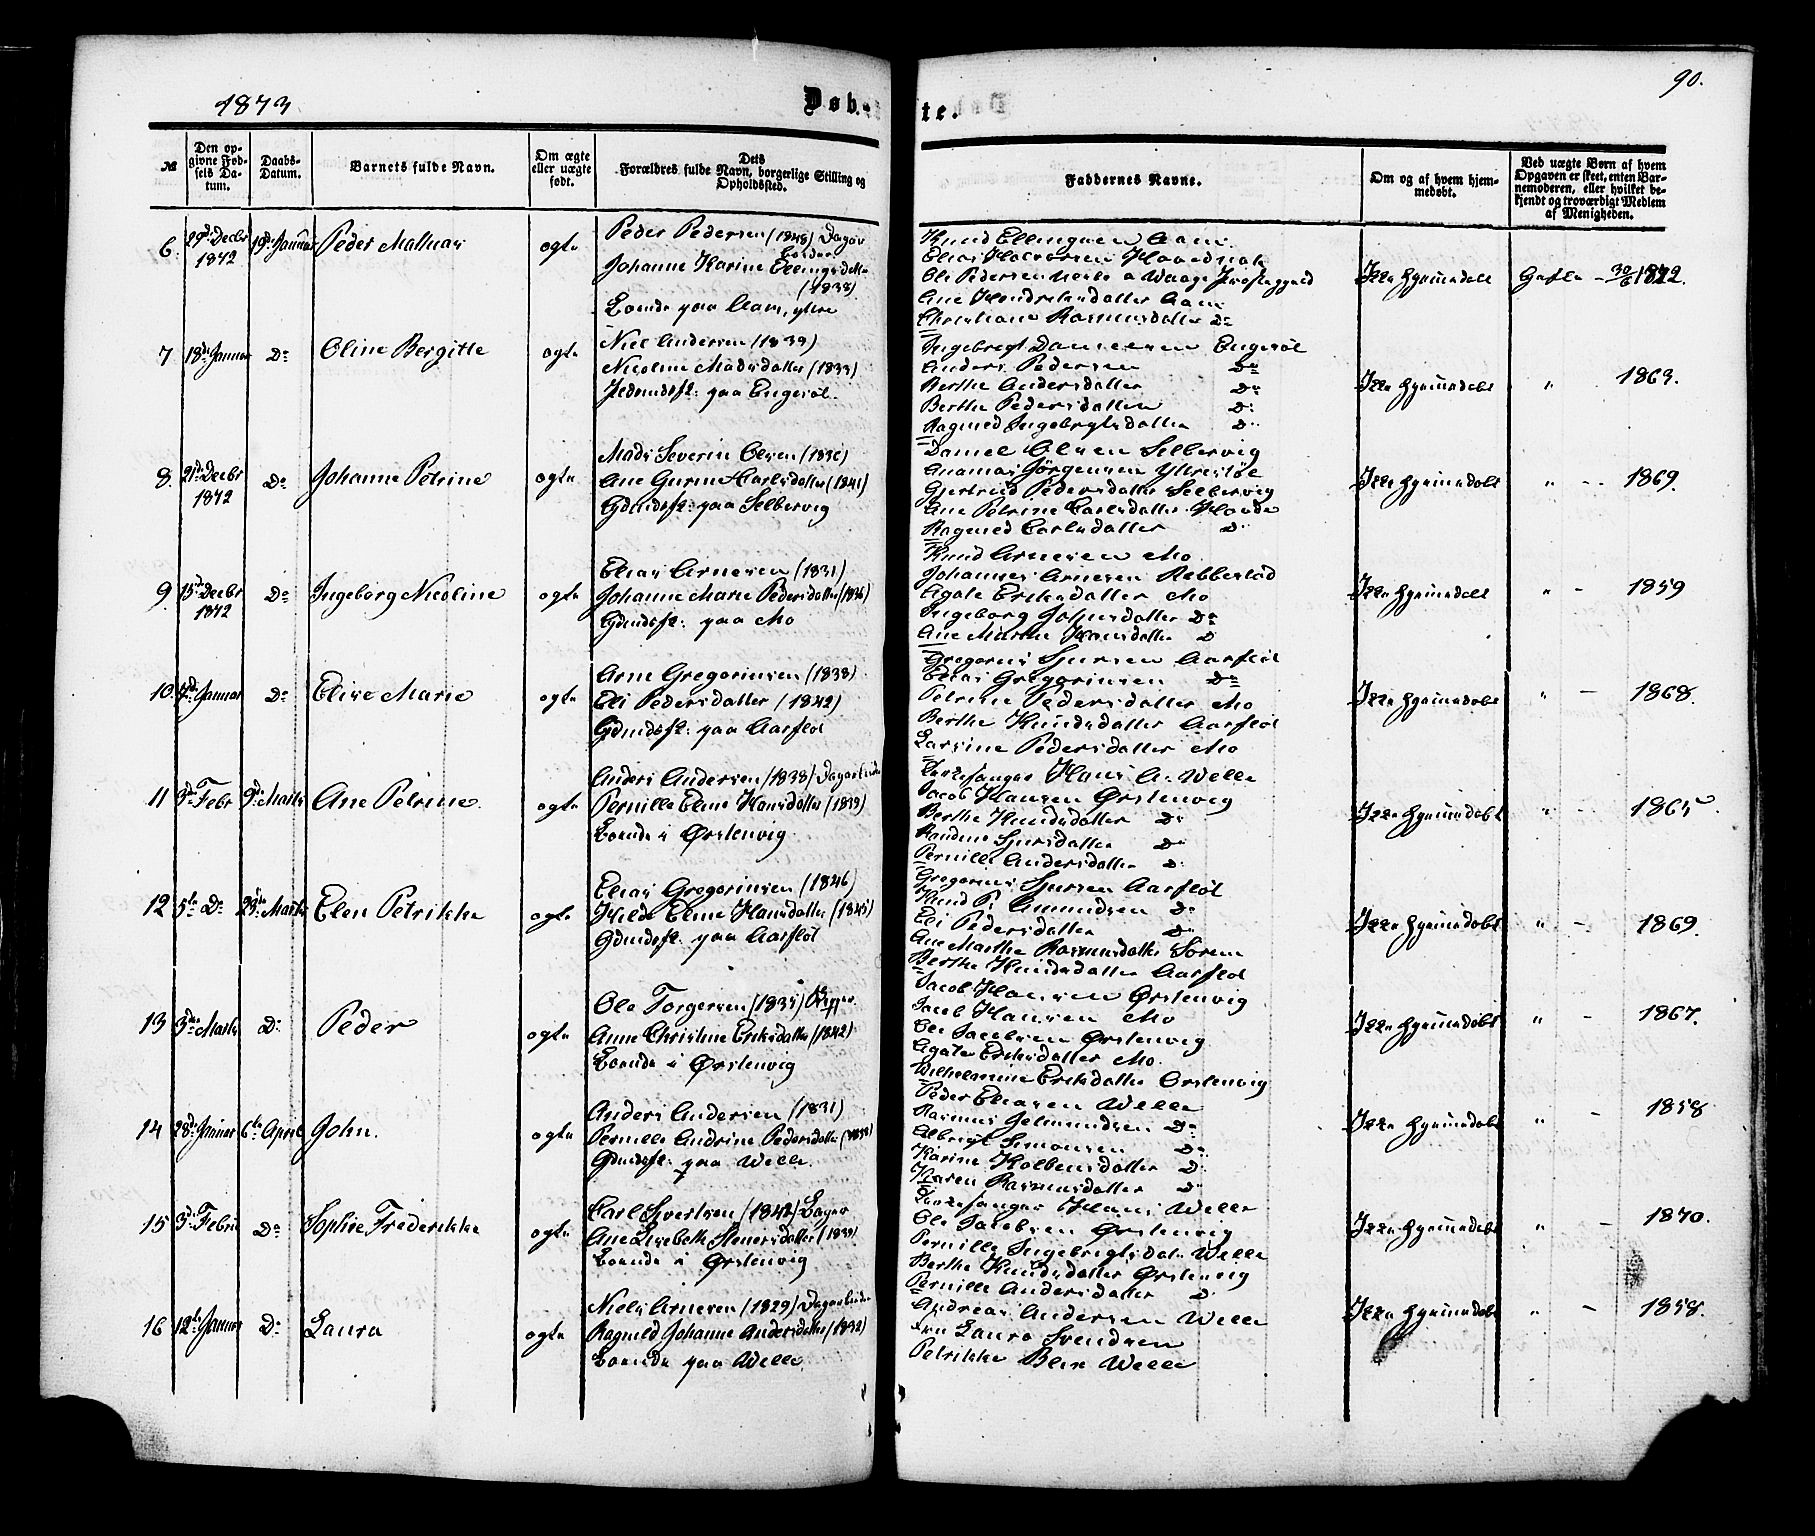 1873
Døbte.
90.
№
Den opgivne Fødsels Datum.
Daabs-Datum.
Barnets fulde Navn.
Om ægte eller uægte født.
Forældres fulde Navn, Dets borgerlige Stilling og Opholdssted.
Faddernes Navne.
Om og af hvem hjemmedøbt.
Ved uægte Børn af hvem Opgaven er skeet, enten Barnemoderen, eller hvilket bekjendt og troværdigt Medlem af Menigheden.
6. 29de Decbr 1872 19de Januar Peder Mathias ægte
Peder Pedersen (1848)
Johanne Karine Ellingsdatter (1838)
Boende paa Aam, ytre
Knud Ellingsen Aam
Elias Halvorsen Hovdenak
Ane Hendriksdatter Aam
Christiane Rasmusdatter Do
Ikke hjemmedøbt Gifte - 30/6 1872.
7 18de Januar Do Oline Bergitte ægte
Niels Andersen (1839)
Nicoline Madsdatter (1833)
paa Engesæt.
Ingebregt Danielsen Engesæt
Anders Pedersen Do
Berthe Andersdatter Do
Berthe Pedersdatter Do
Ragnild Ingebrigtsdatter Do
Ikke hjemmedøbt " 1863.
8. 21de Decbr 1872 Do Johanne Petrine ægte
Mads Severin Olsen (1836)
Ane Gurine Carlsdatter (1841)
Gdmdsf: paa Selbervig
Daniel Olsen Selbervig
Gjertrud Pedersdatter Selbervig
Ane Petrine Carlsdatter Hovde
Ragnild Carlsdatter Do
Ikke hjemmedøbt " - 1869.
9. 15de Decbr 1872 Do Ingeborg Nicoline ægte
Elias Arnesen (1831)
Johanne Marie Pedersdatter (1836)
Gdmdsf: paa Mo
Knud Arnesen Mo
Johannes Arnesen Rebbestad
Agate Eriksdatter Mo
Ingeborg Johnsdatter Do
Ane Marthe Hansdatter D
Ikke hjemmedøbt " - 1859
10. 4de Januar Do Elise Marie ægte
Arne Gregoriusen (1838)
Eli Pedersdatter (1842)
Gdmdsf: paa Aarflot
Gregorius Sjursen Aarflot
Elias Gregoriusen Do
Petrine Pedersdatter Mo
Berthe Knudsdatter Aarflot
Larsine Pedersdatter Mo
Ikke hjemmedøbt " - 1868.
11 3de Febr 9de Marts Ane Petrine. ægte
Anders Andersen (1838) Dagarbeider
Pernille Eline Hansdatter (1839)
Boende i Ørstenvig.
Kirkesanger Hans A. Welle
Jacob Hansen Ørstenvig
Berthe Knudsdatter Do
Randine Sjursdatter Do
Pernille Andersdatter D.
Ikke hjemmedøbt " - 1865.
12 5te Do 23de Marts Elen Petrikke ægte
Elias Gregoriusen (1846)
Hilde Eline Hansdatter (1845)
Gdmdsf: paa Aarflot
Gregorius Sjursen Aarflot
Knud P. Amundsen Do
Eli Pedersdatter Do
Ane Marthe Rasmusdatter
Berthe Knudsdatter Aarflot
Ikke hjemmedøbt " - 1869.
13 3de Marts Do Peder ægte
Ole Torgersen (1835)
Anne Christine Eriksdatter (1842)
Boende i Ørstenvig
Jacob Hansen Ørstenvig
Jacob Hansen Mo
Ole Jacobsen Ørstenvig
Agate Eriksdatter Mo.
Wilhelmine Eriksdatter Ørstenvig
Ikke hjemmedøbt " - 1867.
14 28de Januar 6te April John. ægte
Anders Andersen (1831)
Pernille Andrine Pedersdatter
Gdmdsf: paa Welle.
Peder Eliasen Welle
Rasmus Gelmundsen Do
Albrigt Simonsen Do
Karine Kolbensdatter D
Karen Rasmusdatter D
Ikke hjemmedøbt " - 1858
15 3de Febr Do Sophie Frederikke ægte
Carl Syvertsen (1842) Bager
Ane Lisebeth Stenersdatter (1839)
Boende i Ørstenvig
Kirkesanger Hans Welle
Ole Jacobsen Ørstenvig
Pernille Ingebrigtsdat. Welle
Berthe Knudsdatter Ørstenvig
Pernille Andersdatter D
Ikke hjemmedøbt " - 1870.
16 12te Januar Do Laura ægte
Niels Arnesen (1829) Dagarbeider
Ragnild Johanne Andersdatter (1832)
Boende paa Welle.
Andreas Andersen Welle
Fru Laura Svendsen
Petrikke Blix Welle
Ikke hjemmedøbt " - 1858.